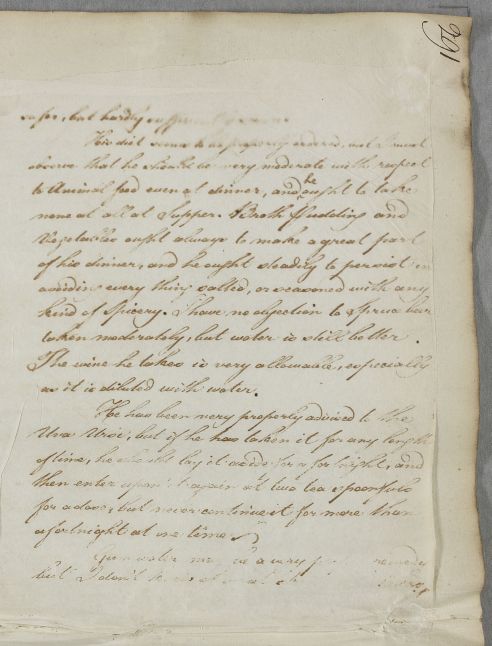 166
safe, but hardly
His diet seems to be properly ordered, and I must
observe that he should be very moderate with respect
to Animal food even at dinner, and he ought to take
none at all at Supper. Broth Pudding and
Vegetables ought always to make a great part
of his dinner, and he ought steadily to persist in
avoiding every thing salted, or seasoned with any
kind of Spicery. I have no objection to Spruce beer
taken moderately, but water is still better.
The wine he takes is very allowable, especially
as it is diluted with water.
He has been very properly advised to the
Uva Ursi, but if he has taken it for any length
of time, he should lay it aside for a fortnight, and
then enter upon it again at two tea spoonfuls
for a dose, but never continue it for more than
a fortnight at one time.
a very remedy
but I don't